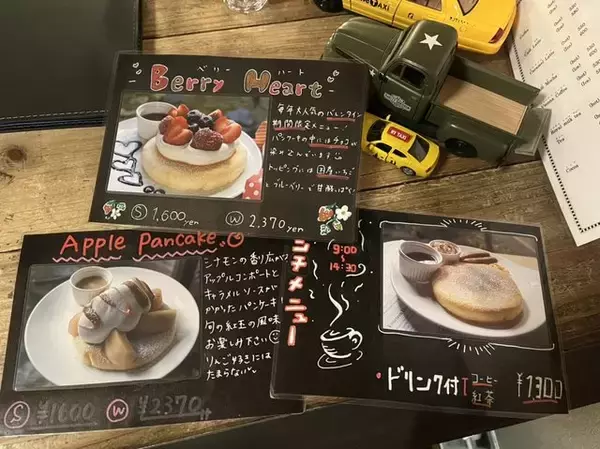 ベリー ハート
Berry Heart
毎年大人気のバレンタイン
期間限定メニュー!
パンケーキの中にはチョコが
トッピングは国産いちご
とブルーベリーで甘酸っぱく
Ⓢ 1,600yen Ⓦ 2,370yen
Apple Pancake
シナモンの香り広がる
アップルコンポートと
キャラメルソースが
かかったパンケーキ!
旬の紅玉の風味
お楽しみ下さい
りんご好きには
たまらない
Ⓢ ¥1600 Ⓦ ¥2,370
ンチメニュー
9:00
~
14:30
・ドリンク付 コーヒー
紅茶
¥1,300
TAXI